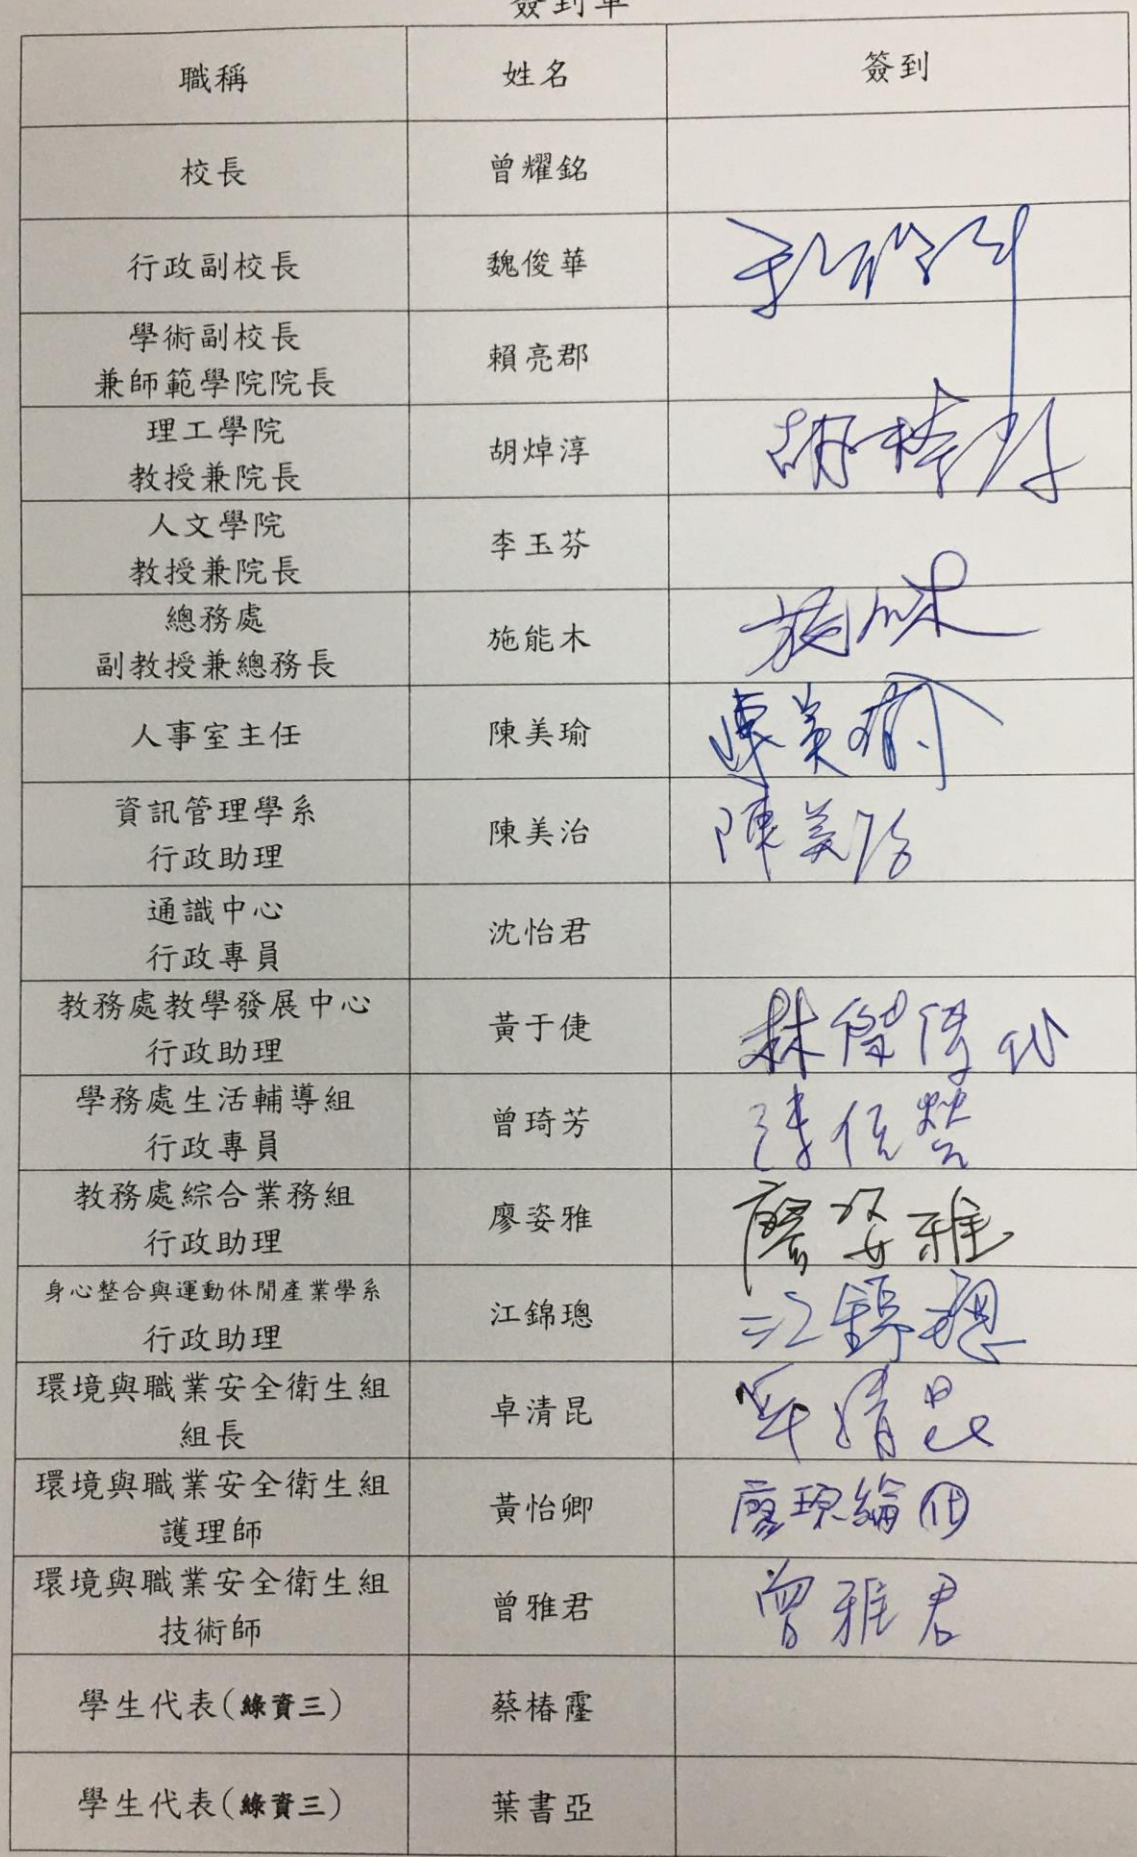 簽到單
職稱 姓名 簽到
校長 曾耀銘
行政副校長 魏俊華
學術副校長
兼師範學院院長 賴亮郡
理工學院
教授兼院長 胡焯淳 胡焯淳
人文學院
教授兼院長 李玉芬
總務處
副教授兼總務長 施能木 施能木
人事室主任 陳美瑜 陳美瑜
資訊管理學系
行政助理 陳美治 陳美治
通識中心
行政專員 沈怡君
教務處教學發展中心
行政助理 黃于倢 林傑 代
學務處生活輔導組
行政專員 曾琦芳
教務處綜合業務組
行政助理 廖姿雅 廖姿雅
身心整合與運動休閒產業學系
行政助理 江錦璁 江錦璁
環境與職業安全衛生組
組長 卓清昆 卓清昆
環境與職業安全衛生組
護理師 黃怡卿 廖 綸 代
環境與職業安全衛生組
技術師 曾雅君 曾雅君
學生代表(綠資三) 蔡椿霳
學生代表(綠資三) 葉書亞